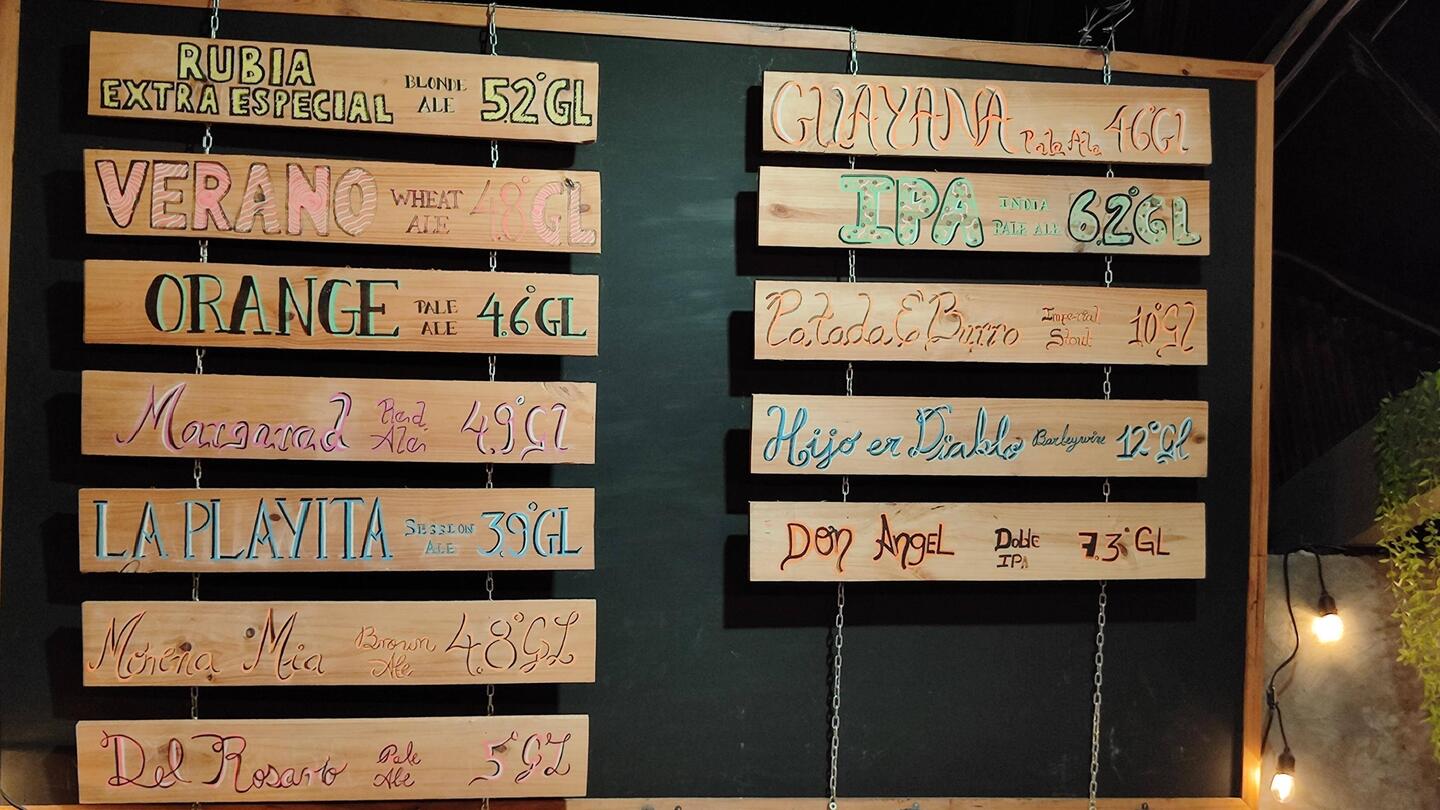 RUBIA
EXTRA ESPECIAL
BLONDE
ALE
5.2°GL
VERANO
WHEAT
ALE
4.8°GL
ORANGE
PALE
ALE
4.6°GL
Red
Ale
4.9°Gl
LA PLAYITA
SESSION
ALE
3.9°GL
Morena Mia
Brown
Ale
4.8°GL
Del Rosario
Pale
Ale
5°GL
GUAYANA
Pale Ale
4.6°Gl
IPA
INDIA
PALE ALE
6.2°GL
Patada E' Burro
Imperial
Stout
10°gl
Hijo er Diablo
Barleywine
12°Gl
Don Angel
Doble
IPA
7.3°GL